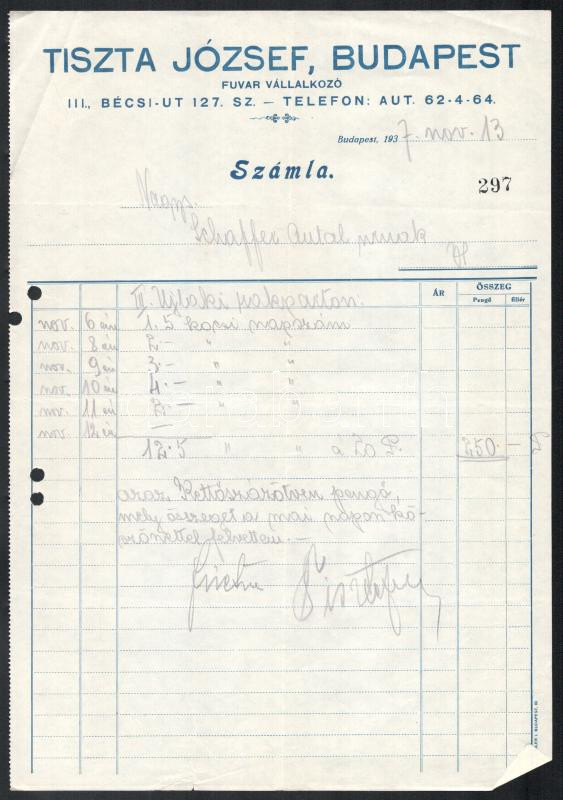 TISZTA JÓZSEF, BUDAPEST
FUVAR VÁLLALKOZÓ
III., BÉCSI-UT 127. SZ. — TELEFON: AUT. 62-4-64.
Budapest, 1937. nov. 13
Számla.
297
Nags.
Schaffer Antal urnak
ÁR ÖSSZEG
Pengő fillér
III. Ujlaki rakparton.
nov. 6 án 1.5 kocsi napszám
nov. 8 án 2.- " "
nov. 9 én 3.- " "
nov. 10 én 4.- " "
nov. 11 én 2.- " "
nov. 12 én —
12.5 " " a 20 P. 250.— P
azaz Kettőszázötven pengő,
mely összeget a mai napon kö-
szönettel felvettem.—